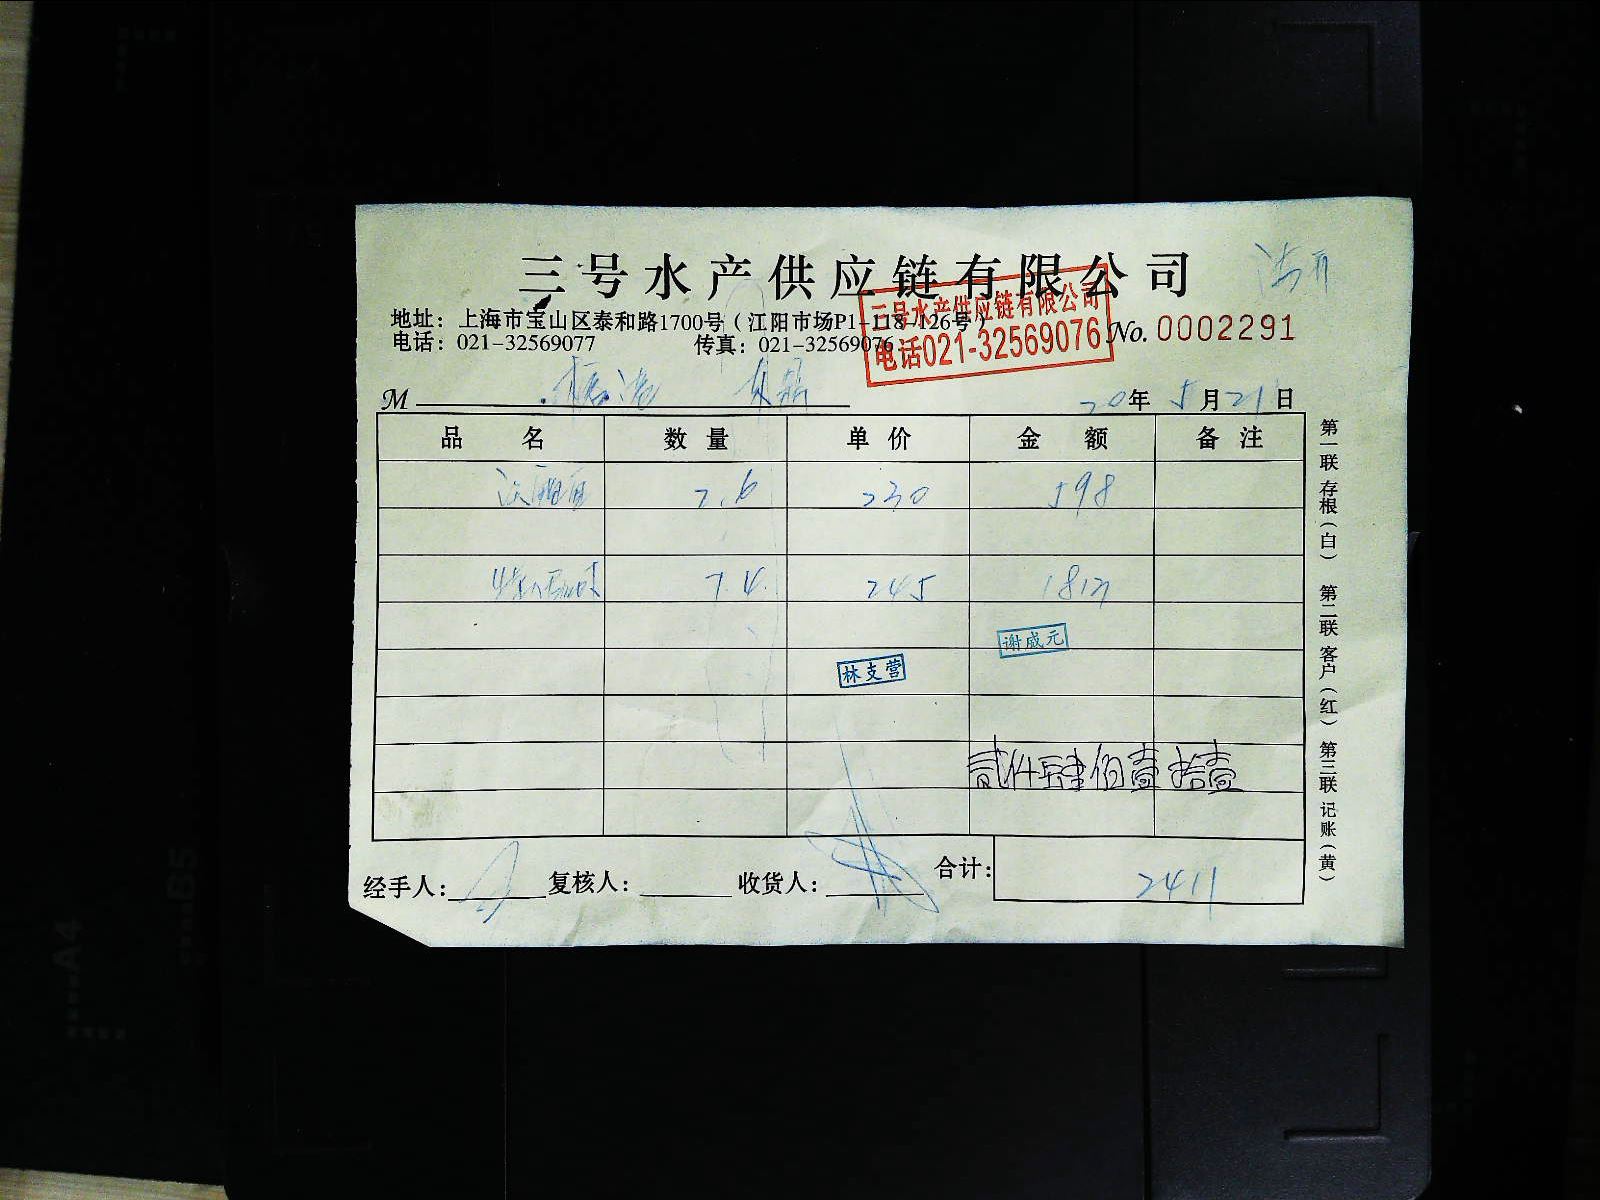 三号水产供应链有限公司
地址：上海市宝山区泰和路1700号（江阳市场P1-118-126号）
电话：021-32569077 传真：021-32569076
三号水产供应链有限公司
电话021-32569076
No. 0002291
M
20年 5月21日
品名 数量 单价 金额 备注
2.6 230 598
7.4 245 1813
谢成元
林支营
贰仟肆佰壹拾壹
经手人： 复核人： 收货人： 合计： 2411
第一联 存根（白） 第二联 客户（红） 第三联 记账（黄）
A4
B5